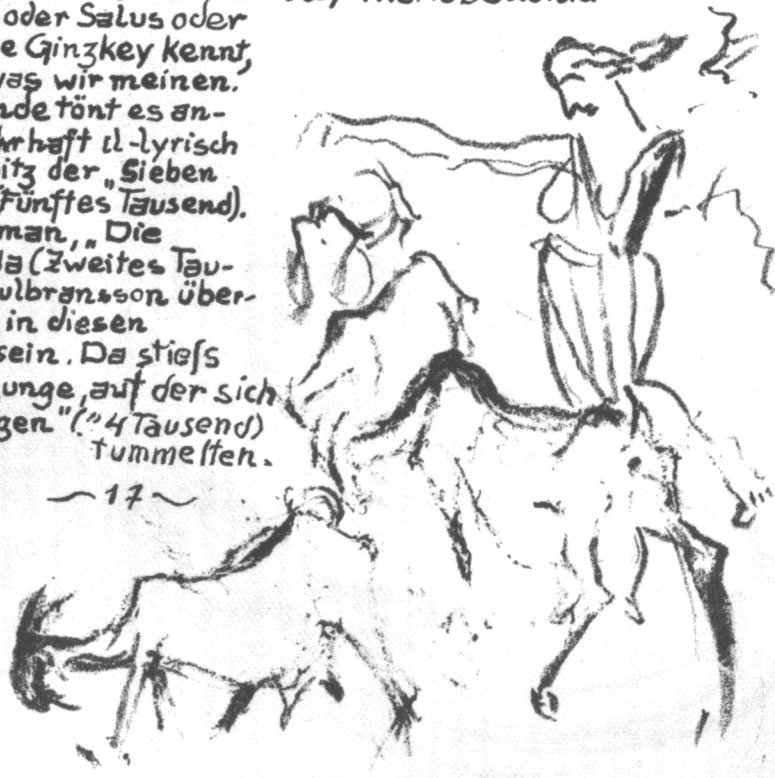 oder Salus oder
e Ginzkey kennt,
was wir meinen.
nde tönt es an-
hrhaft il-lyrisch
itz der „Sieben
(Fünftes Tausend).
man, „Die
la (Zweites Tau-
ulbransson über-
in diesen
sein. Da stiefs
unge, auf der sich
gen" ("4 Tausend)
tummelten.
—17—